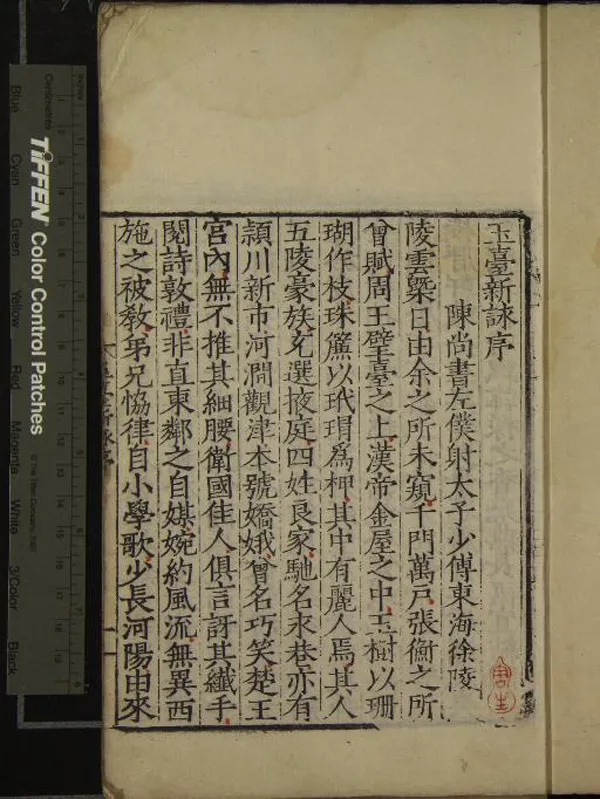 玉臺新詠序
陳尚書左僕射太子少傅東海徐陵
陵雲槩日由余之所未窺千門萬戸張衡之所
曾賦周王璧臺之上漢帝金屋之中玉樹以珊
瑚作枝珠簾以玳瑁爲柙其中有麗人焉其人
五陵豪族充選掖庭四姓良家馳名永巷亦有
潁川新市河澗觀津本號嬌娥曾名巧笑楚王
宮內無不推其細腰衛國佳人俱言訝其纖手
閱詩敦禮非直東鄰之自媒婉約風流無異西
施之被敎弟兄恊律自小學歌少長河陽由來
TIFFEN Color Control Patches
© The Tiffen Company, 2007
Centimetres
Inches
Blue
Cyan
Green
Yellow
Red
Magenta
White
3/Color
Black